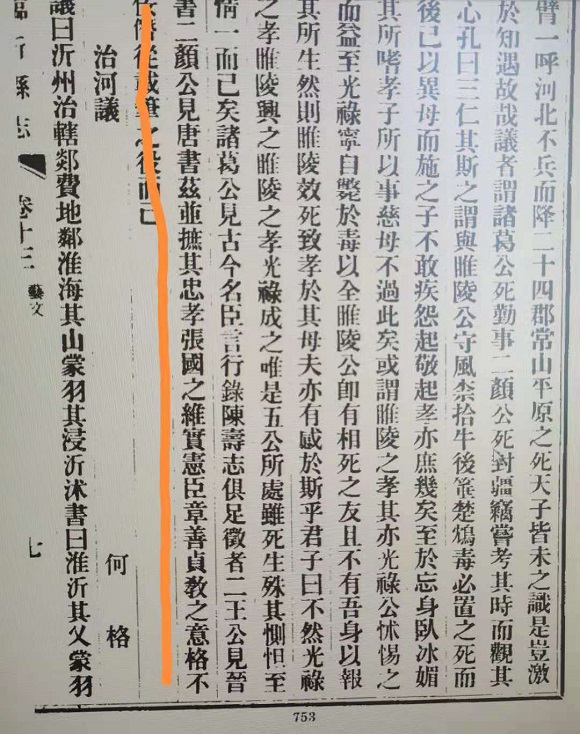 臂一呼河北不兵而降二十四郡常山平原之死天子皆未之識是豈激
於知遇故哉議者謂諸葛公死勤事二顏公死對疆竊嘗考其時而觀其
心孔曰三仁其斯之謂與睢陵公守風柰拾牛後箠楚煱毒必置之死而
後已以異母而施之子不敢疾怨起敬起孝亦庶幾矣至於忘身臥冰媚
其所嗜孝子所以事慈母不過此矣或謂睢陵之孝其亦光祿公怵惕之
而益至光祿寧自斃於毒以全睢陵公卽有相死之友且不有吾身以報
其所生然則睢陵效死致孝於其母夫亦有感於斯乎君子曰不然光祿
之孝睢陵興之睢陵之孝光祿成之唯是五公所處雖死生殊其惻怛至
情一而已矣諸葛公見古今名臣言行錄陳壽志俱足徵者二王公見晉
書二顏公見唐書茲並摭其忠孝張國之維實憲臣章善貞教之意格不
從載筆之役而已
治河議 何格
議曰沂州治轄郯費地鄰淮海其山蒙羽其浸沂沭書曰淮沂其乂蒙羽
臨沂縣志 卷十三 藝文 七
753